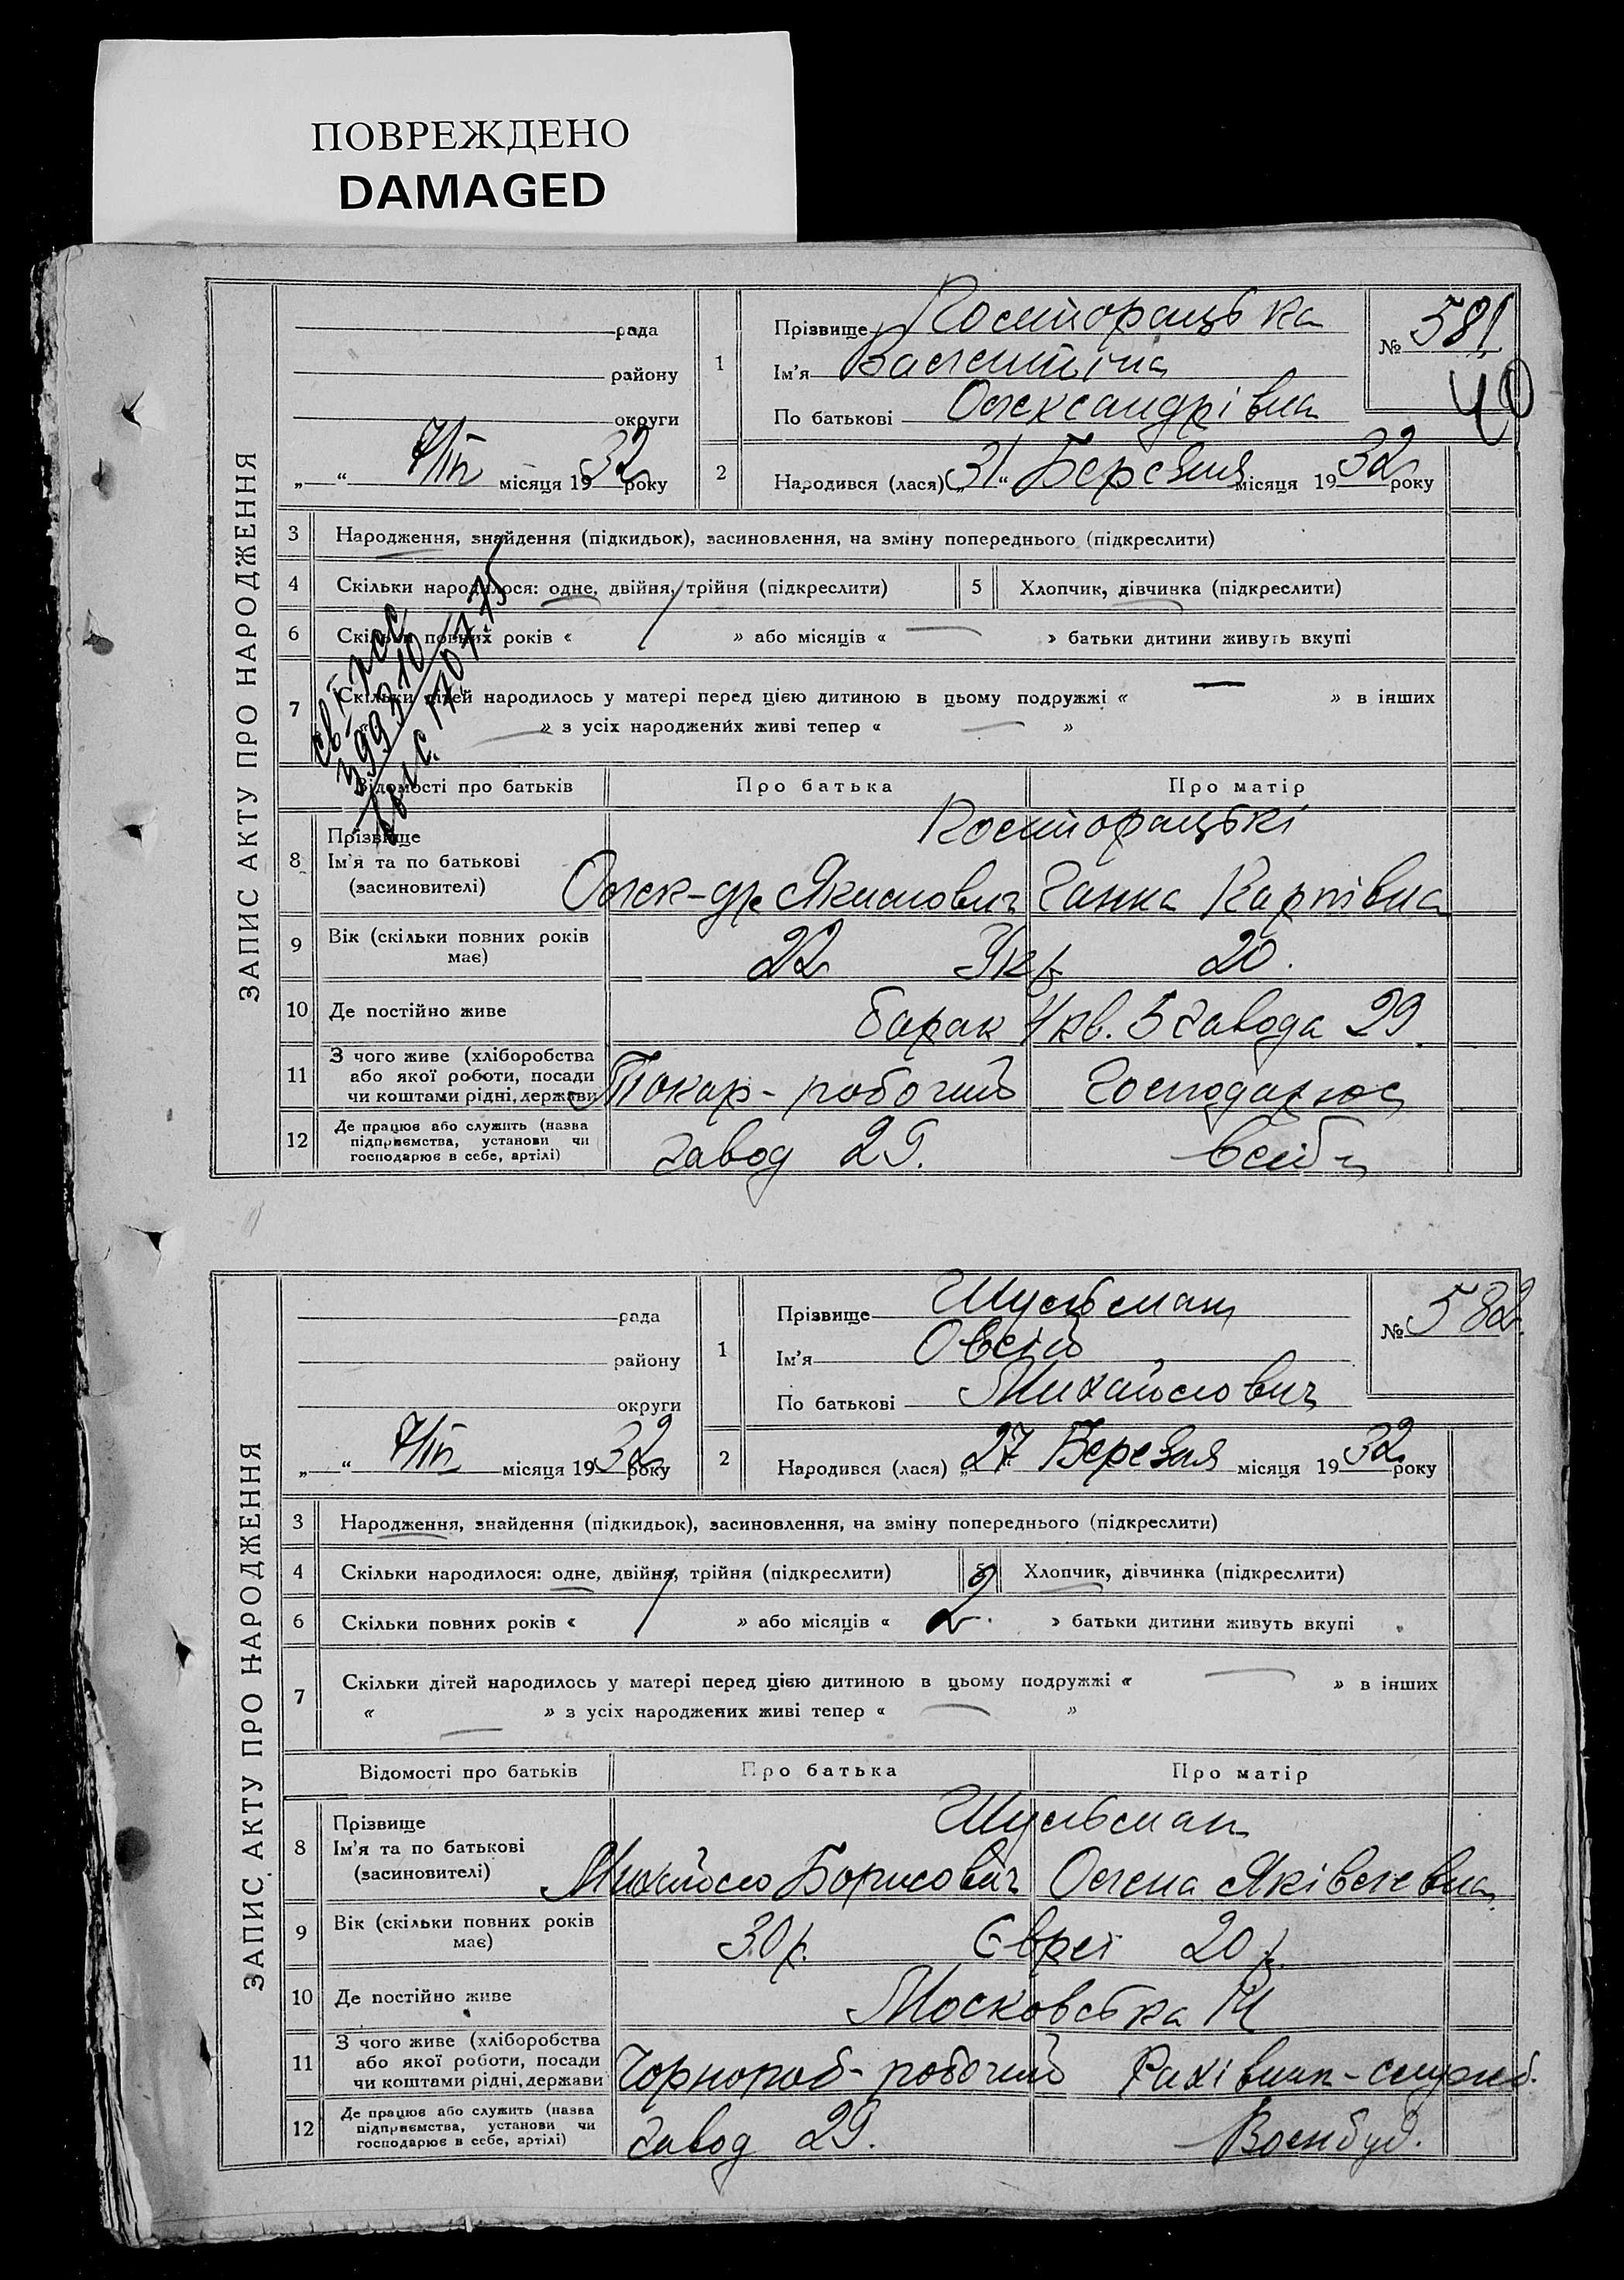 ПОВРЕЖДЕНО
DAMAGED
ЗАПИС АКТУ ПРО НАРОДЖЕННЯ
рада
району
округи
„ “ 7/IV місяця 1932 року
1
Прізвище Косторацька
Ім'я Валентіна
По батькові Олександрівна
№ 581
40
2
Народився (лася) „31“ Березня місяця 1932 року
3 Народження, знайдення (підкидьок), засиновлення, на зміну попереднього (підкреслити)
4 Скільки народилося: одне, двійня, трійня (підкреслити) 5 Хлопчик, дівчинка (підкреслити)
6 Скільки повних років « » або місяців « — » батьки дитини живуть вкупі
7 Скільки дітей народилось у матері перед цією дитиною в цьому подружжі « — » в інших
« — » з усіх народжених живі тепер « — »
Відомості про батьків Про батька Про матір
8 Прізвище Косторацькі
Ім'я та по батькові
(засиновителі) Олек-др Якимович Ганна Карпівна
9 Вік (скільки повних років має) 22 Укр 20.
10 Де постійно живе барак 4 кв. 5 завода 29
11 З чого живе (хліборобства
або якої роботи, посади
чи коштами рідні, держави Токар - робочий Господарює
12 Де працює або служить (назва
підприємства, установи чи
господарює в себе, артілі) завод 29. в себе
ЗАПИС АКТУ ПРО НАРОДЖЕННЯ
рада
району
округи
„ “ 7/IV місяця 1932 року
1
Прізвище Шульман
Ім'я Овсій
По батькові Михайлович
№ 582.
2
Народився (лася) „27 Березня місяця 1932 року
3 Народження, знайдення (підкидьок), засиновлення, на зміну попереднього (підкреслити)
4 Скільки народилося: одне, двійня, трійня (підкреслити) 5 Хлопчик, дівчинка (підкреслити)
6 Скільки повних років « » або місяців « 2. » батьки дитини живуть вкупі
7 Скільки дітей народилось у матері перед цією дитиною в цьому подружжі « — » в інших
« — » з усіх народжених живі тепер « — »
Відомості про батьків Про батька Про матір
8 Прізвище Шульман
Ім'я та по батькові
(засиновителі) Михайло Борисович Олена Яківлевна
9 Вік (скільки повних років має) 30 р. Євреї 20 р.
10 Де постійно живе Московська
11 З чого живе (хліборобства
або якої роботи, посади
чи коштами рідні, держави Чорнороб - робочий Рахівник - служб.
12 Де працює або служить (назва
підприємства, установи чи
господарює в себе, артілі) завод 29. Военбуд.